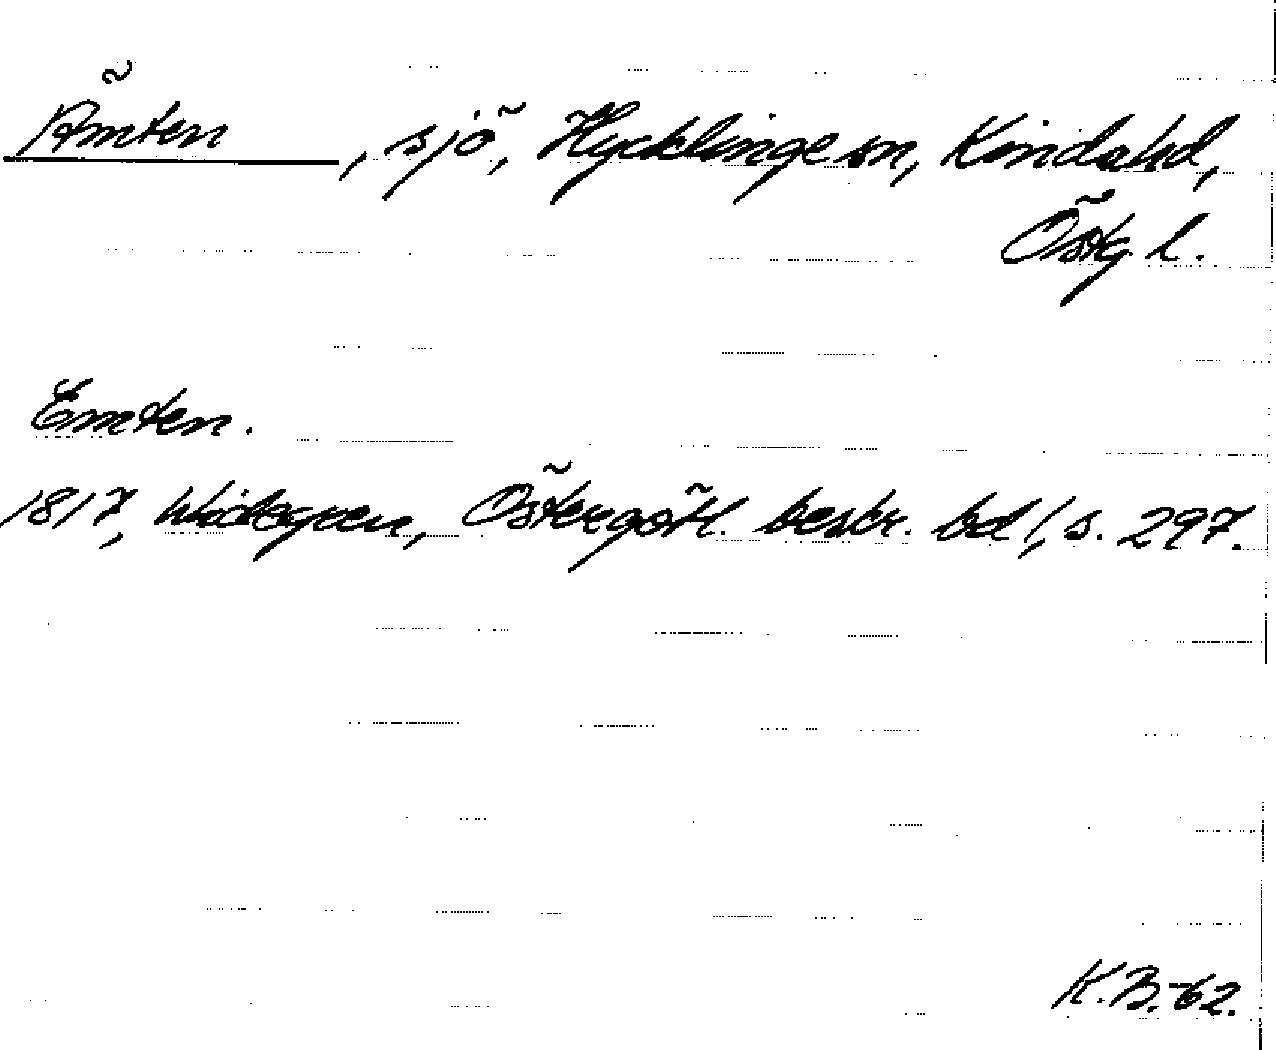 Ämten, sjö, Hycklinge sn, Kinda hd,
Östg. l.
Emten.
1817, Widegren, Östergötl. beskr. bd 1, s. 297.
K.B.-62.